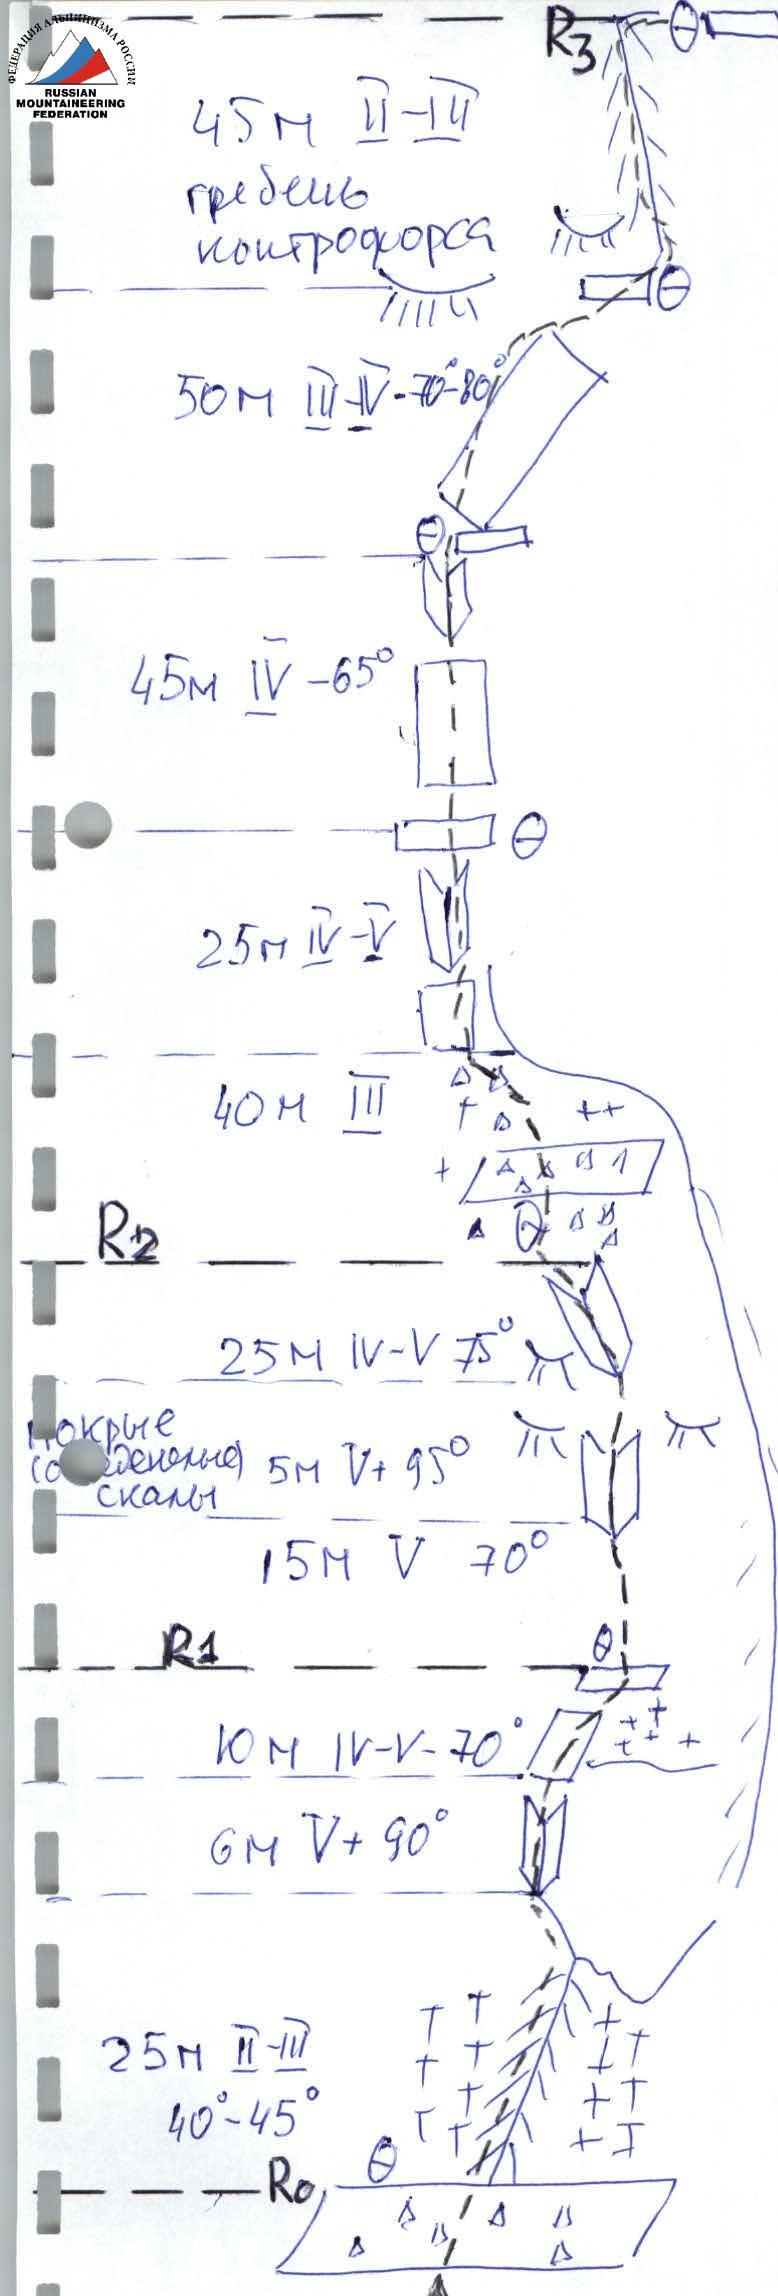 ФЕДЕРАЦИЯ АЛЬПИНИЗМА РОССИИ
RUSSIAN
MOUNTAINEERING
FEDERATION
R3
45м II-III
гребень
контрфорса
50м III-IV-70°-80°
45м IV -65°
25м IV-V
40м III
R2
25м IV-V 75°
мокрые
скалы
5м V+ 95°
15м V 70°
R1
10м IV-V-70°
6м V+ 90°
25м II-III
40°-45°
R0